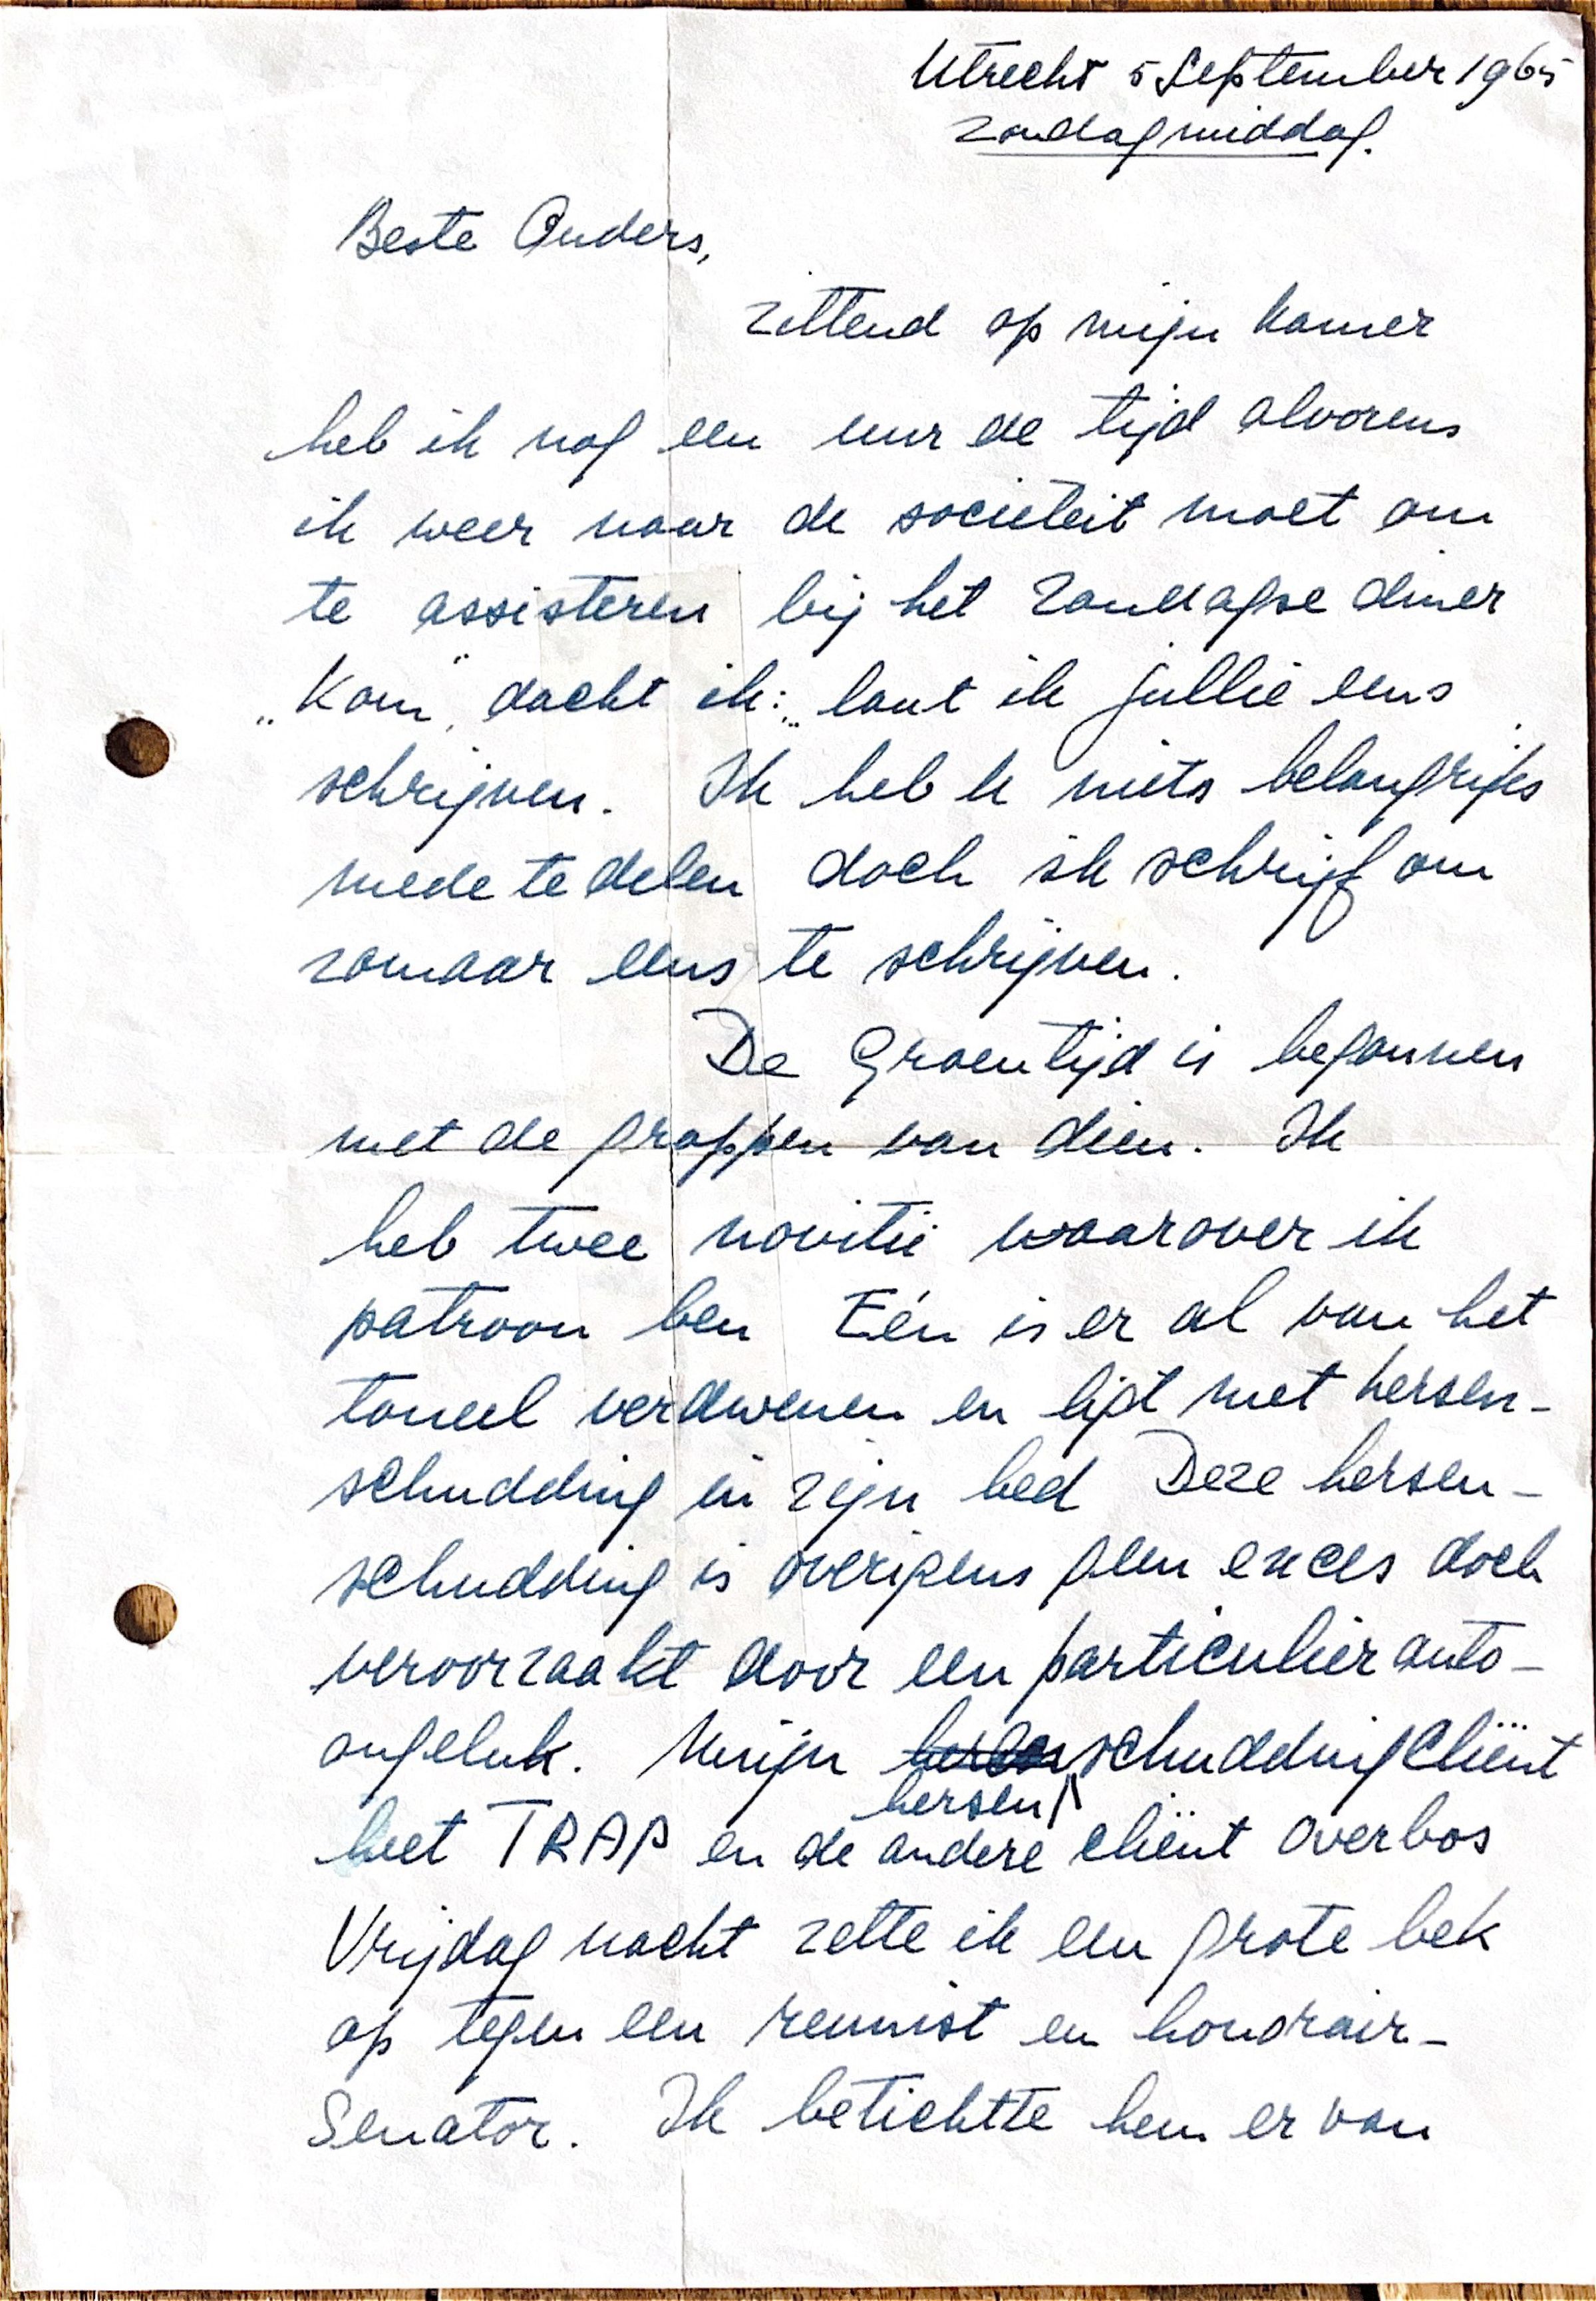 Utrecht 5 September 1965
zondagmiddag.
Beste Ouders,
zittend op mijn kamer
heb ik nog een uur de tijd alvorens
ik weer naar de societeit moet om
te assisteren bij het zondagse diner
„Kom", dacht ik: „laat ik jullie eens
schrijven. Ik heb U niets belangrijks
mede te delen doch ik schrijf om
zomaar eens te schrijven.
De Groentijd is begonnen
met de grappen van dien. Ik
heb twee novitii waarover ik
patroon ben Eén is er al van het
toneel verdwenen en ligt met hersen-
schudding in zijn bed Deze hersen-
schudding is overigens geen exces doch
veroorzaakt door een particulier auto-
ongeluk. Mijn hersenschuddingcliënt
heet TRAP en de andere cliënt Overbos
Vrijdag nacht zette ik een grote bek
op tegen een reunist en honorair-
Senator. Ik betichtte hem er van